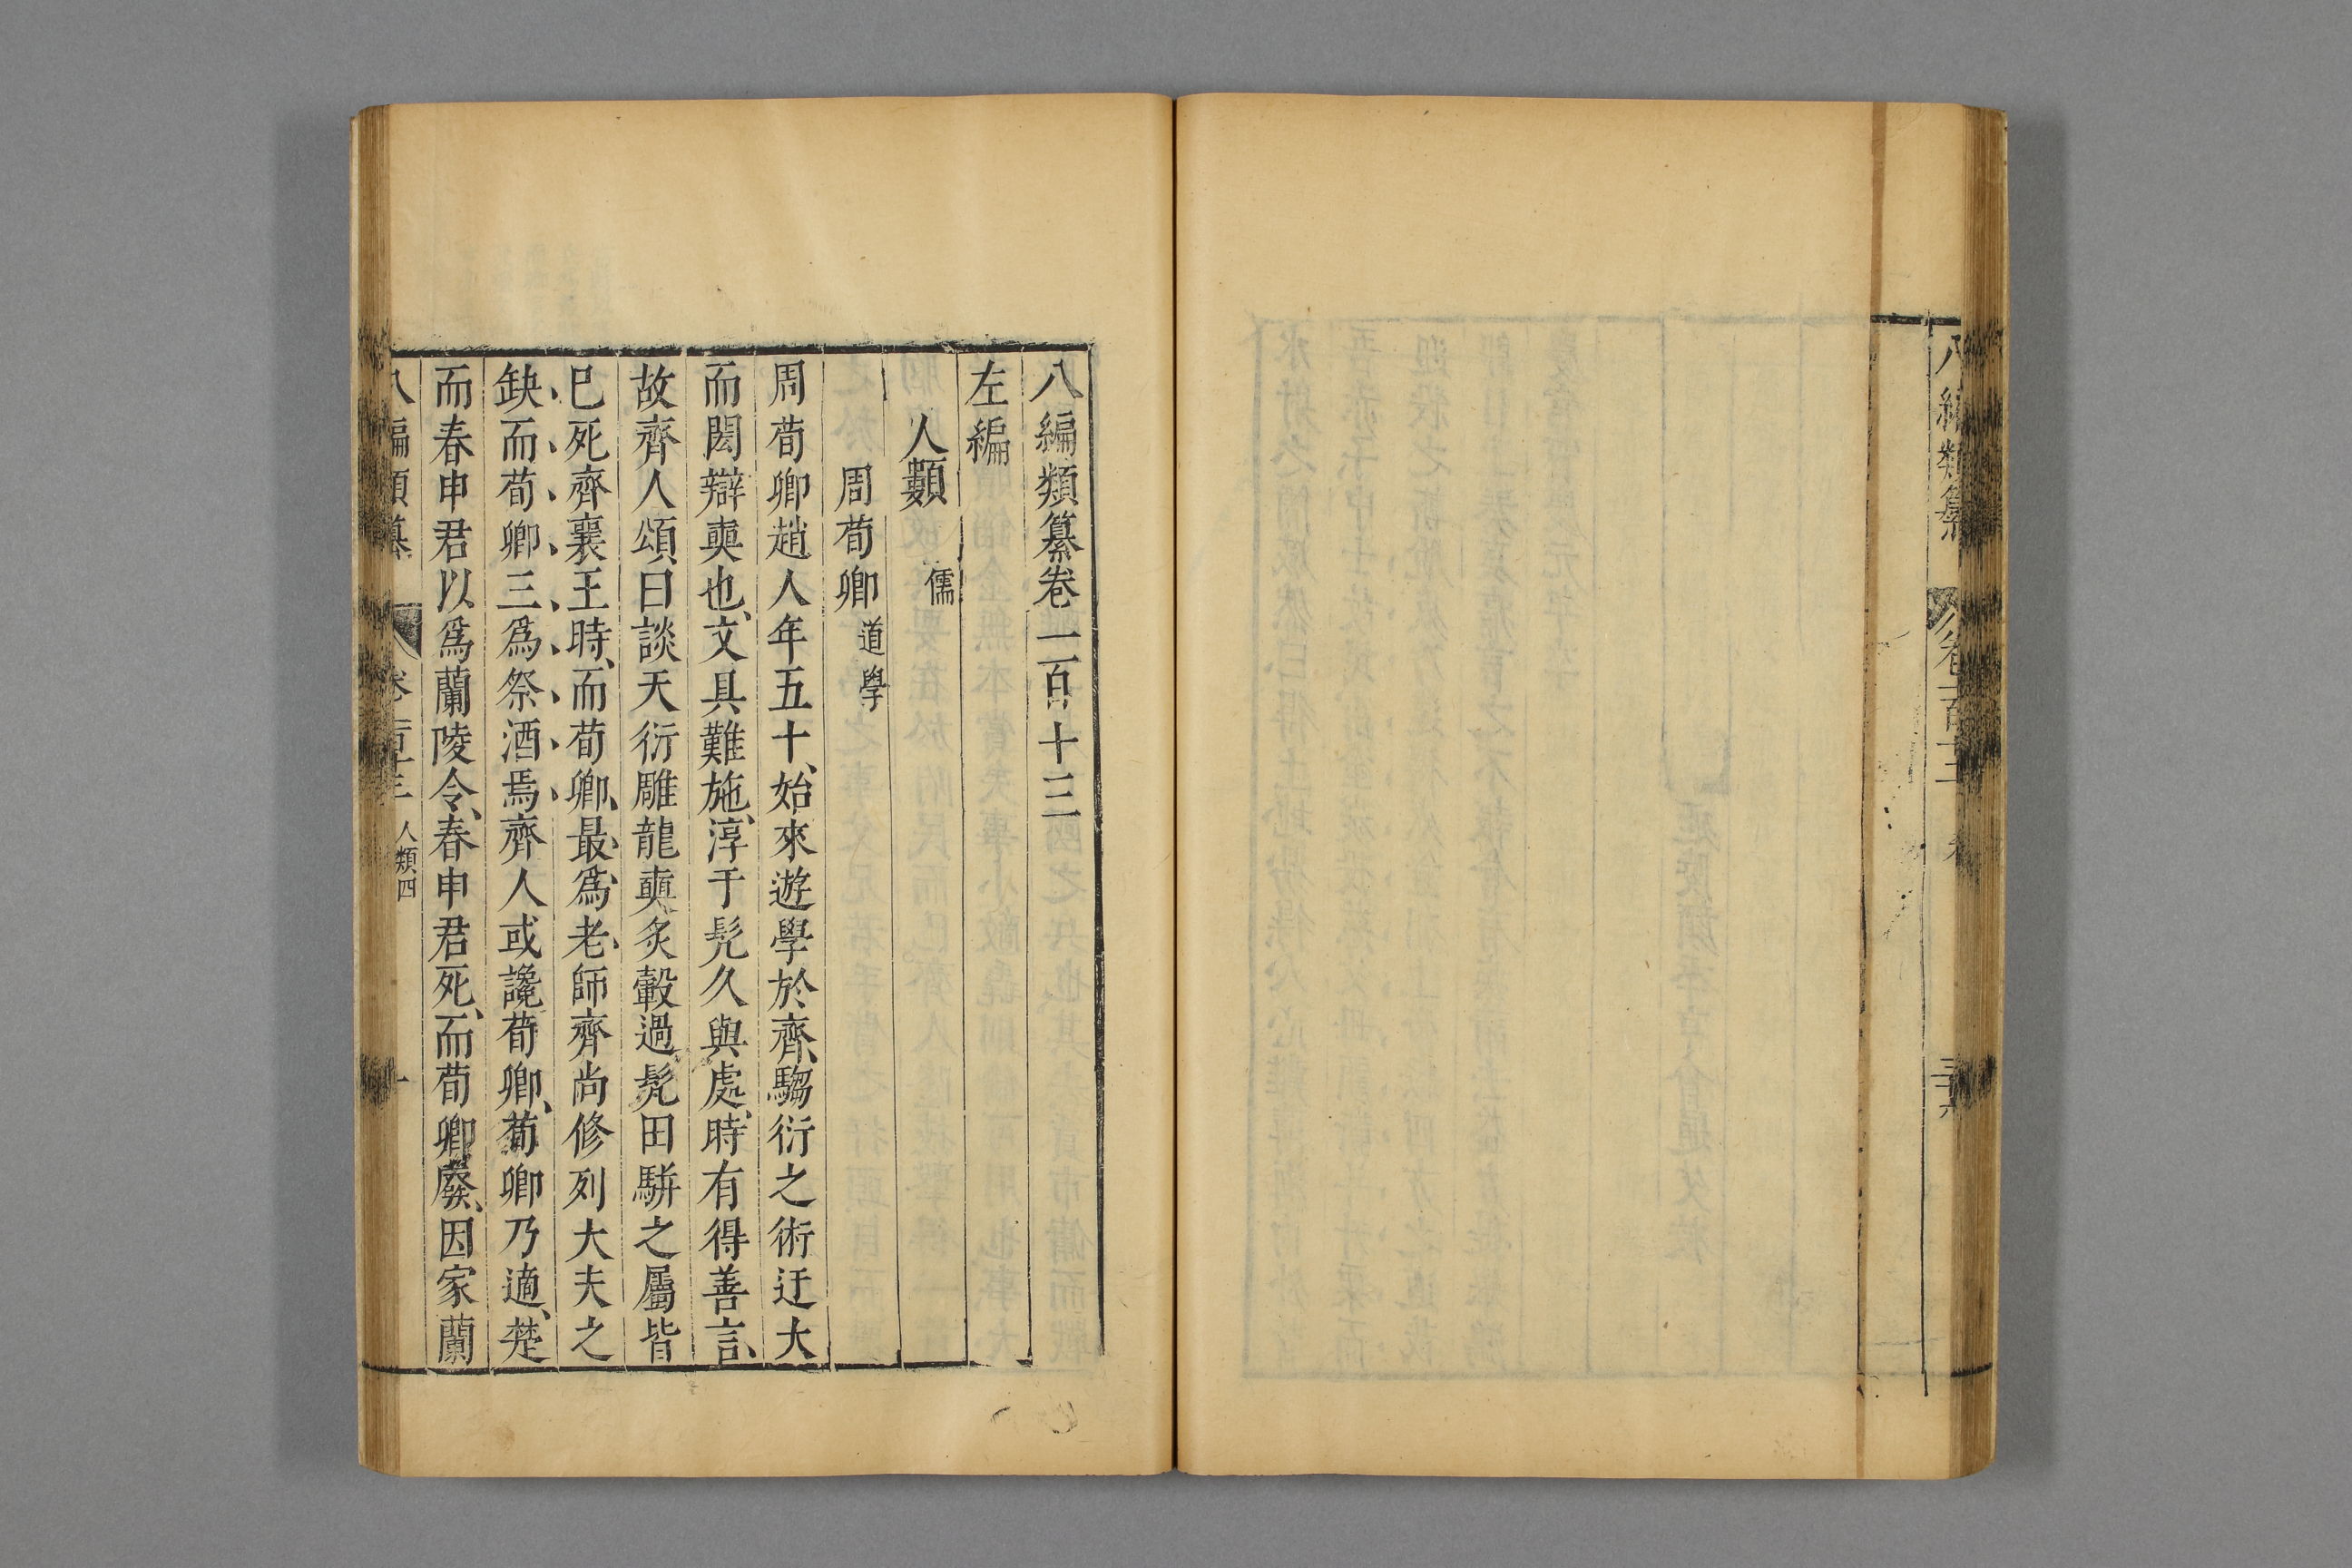 八編類纂
八編類纂卷一百十三
左編
人類 儒
周荀卿 道學
周荀卿趙人年五十、始來遊學於齊、騶衍之術迂大
而閎辯奭也、文具難施、淳于髡久與處、時有得善言、
故齊人頌曰談天衍雕龍奭炙轂過髡田駢之屬皆
已死齊襄王時、而荀卿最爲老師齊尚修列大夫之
缺而荀卿三爲祭酒焉齊人或讒荀卿、荀卿乃適、楚
而春申君以爲蘭陵令、春申君死、而荀卿廢、因家蘭
八編類纂 卷一百十三 人類四 一